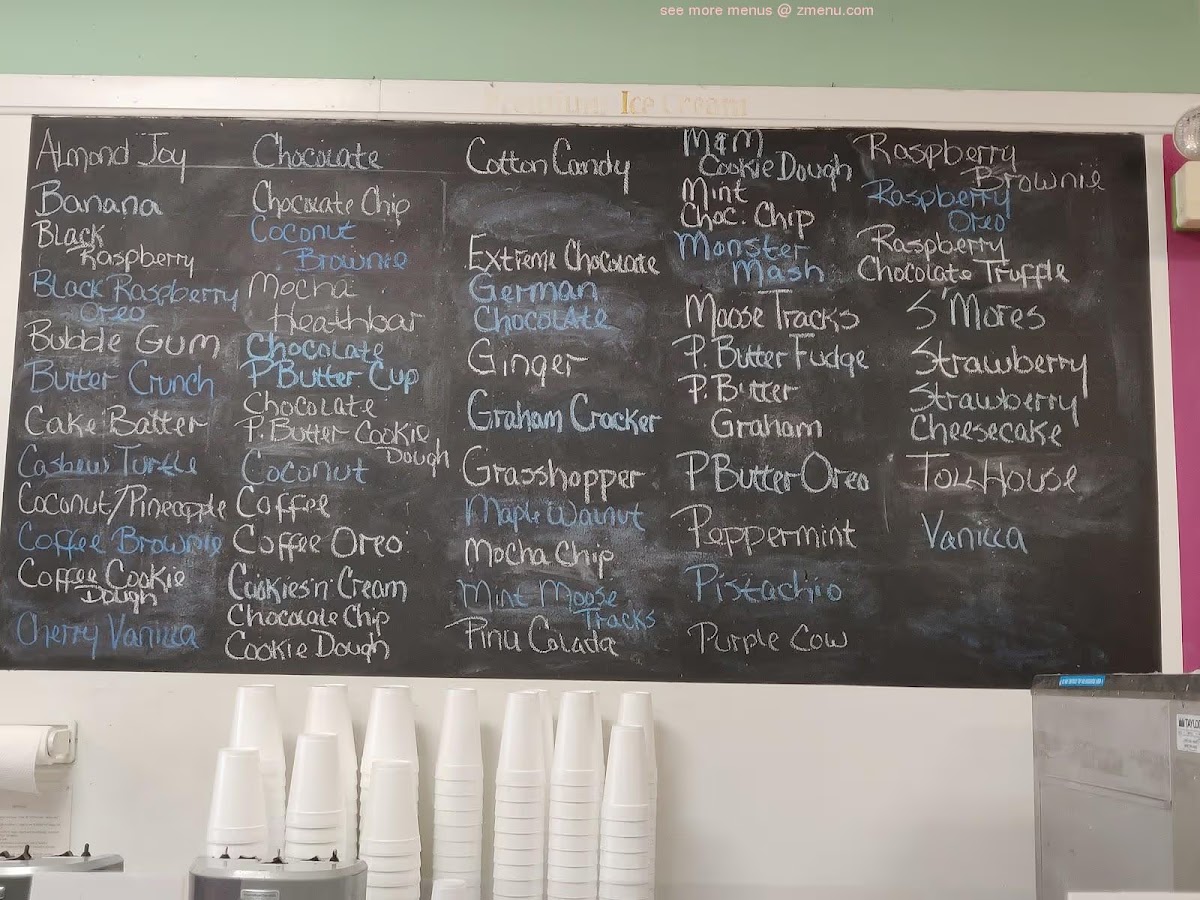 see more menus @ zmenu.com
Premium Ice Cream
Almond Joy
Banana
Black
Raspberry
Black Raspberry
Oreo
Bubble Gum
Butter Crunch
Cake Batter
Cashew Turtle
Coconut/Pineapple
Coffee Brownie
Coffee Cookie
Dough
Cherry Vanilla
Chocolate
Chocolate Chip
Coconut
Brownie
Mocha
Heathbar
Chocolate
P.Butter Cup
Chocolate
P. Butter Cookie
Dough
Coconut
Coffee
Coffee Oreo
Cookies'n' Cream
Chocolate Chip
Cookie Dough
Cotton Candy
Extreme Chocolate
German
Chocolate
Ginger
Graham Cracker
Grasshopper
Maple Walnut
Mocha Chip
Mint Moose
Tracks
Pinu Colada
M&M
Cookie Dough
Mint
Choc. Chip
Monster
Mash
Moose Tracks
P. Butter Fudge
P. Butter
Graham
P Butter Oreo
Peppermint
Pistachio
Purple Cow
Raspberry
Brownie
Raspberry
Oreo
Raspberry
Chocolate Truffle
S'Mores
Strawberry
Strawberry
Cheesecake
Toll House
Vanilla
TAYLOR